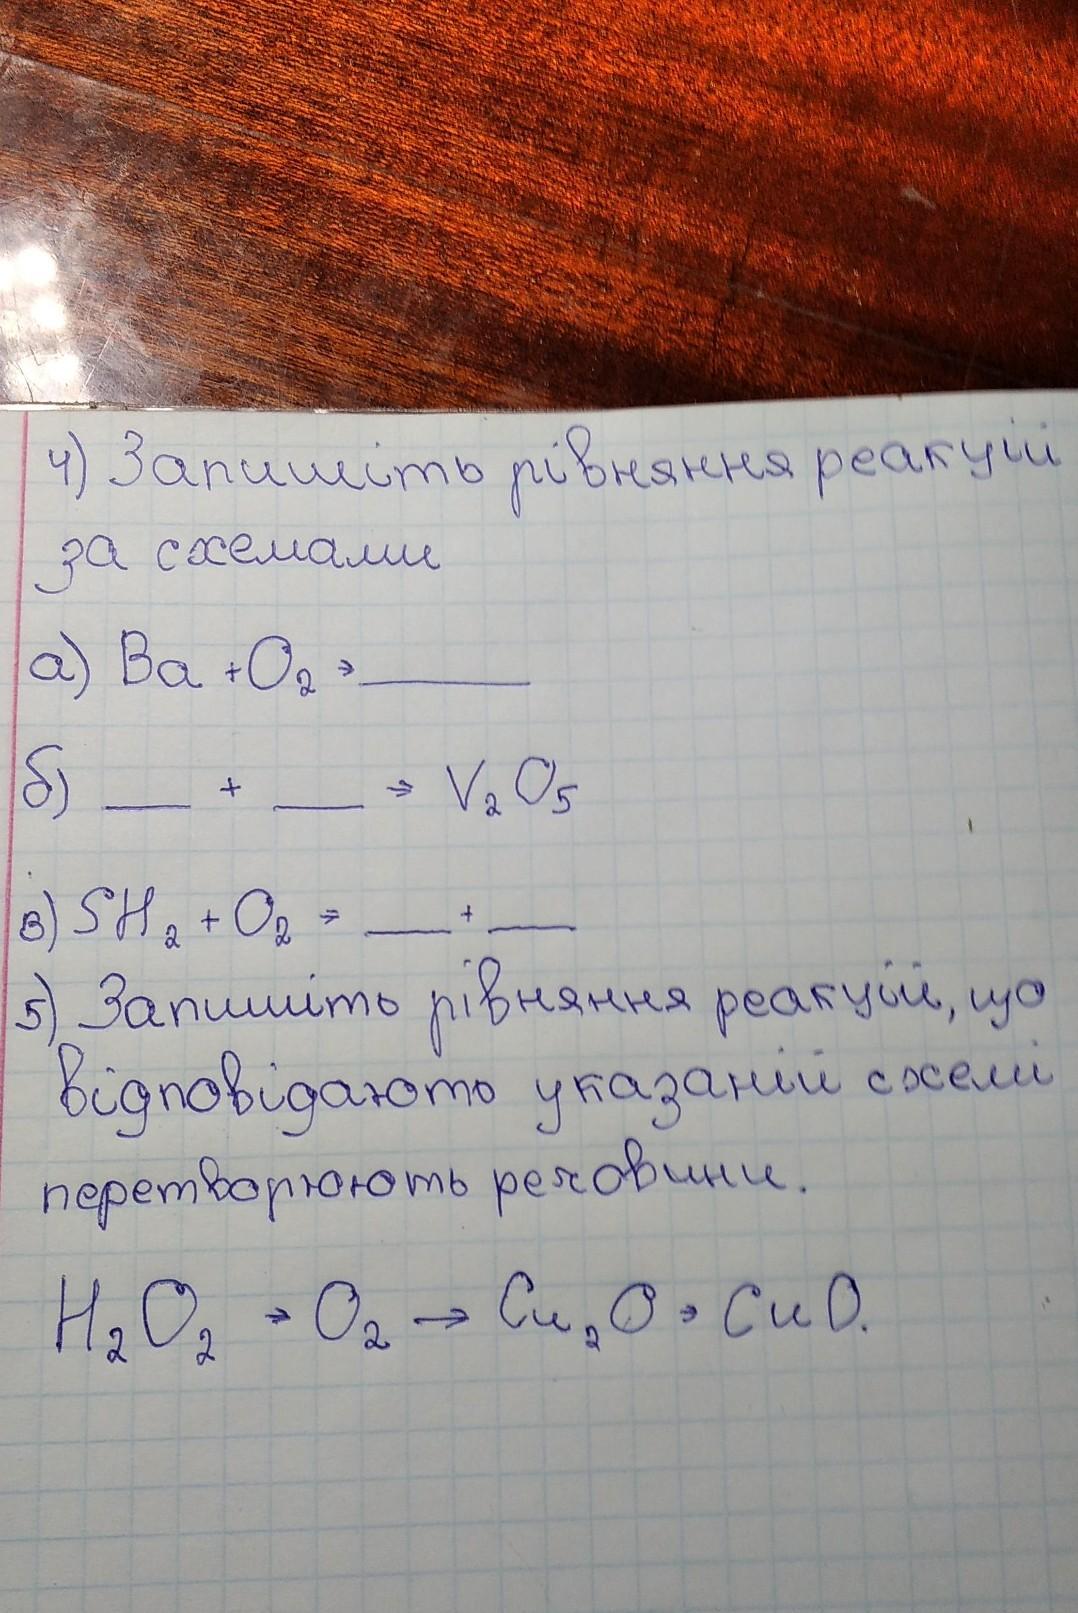 4) Запишіть рівняння реакцій
за схемами
а) Ba + O₂ → ______
б) ___ + ___ → V₂O₅
в) SH₂ + O₂ → ___ + ___
5) Запишіть рівняння реакцій, що
відповідають указаній схемі
перетворюють речовини.
H₂O₂ → O₂ → Cu₂O → CuO.